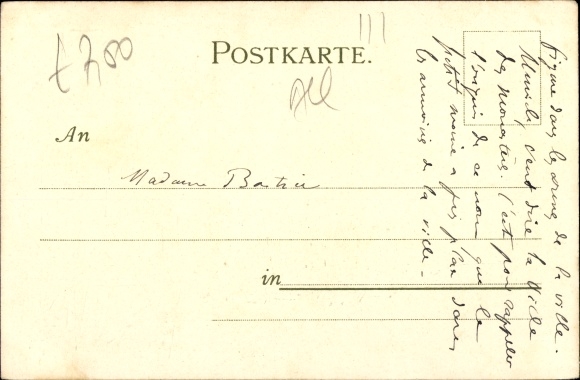 £7,00
III
POSTKARTE.
An
Madame Bastier
in
figure dans les armes de la ville.
Munich veut dire la Ville
des monastères. C'est pour rappeler
l'origine de ce nom que le
petit moine a pris place dans
les armoiries de la ville -